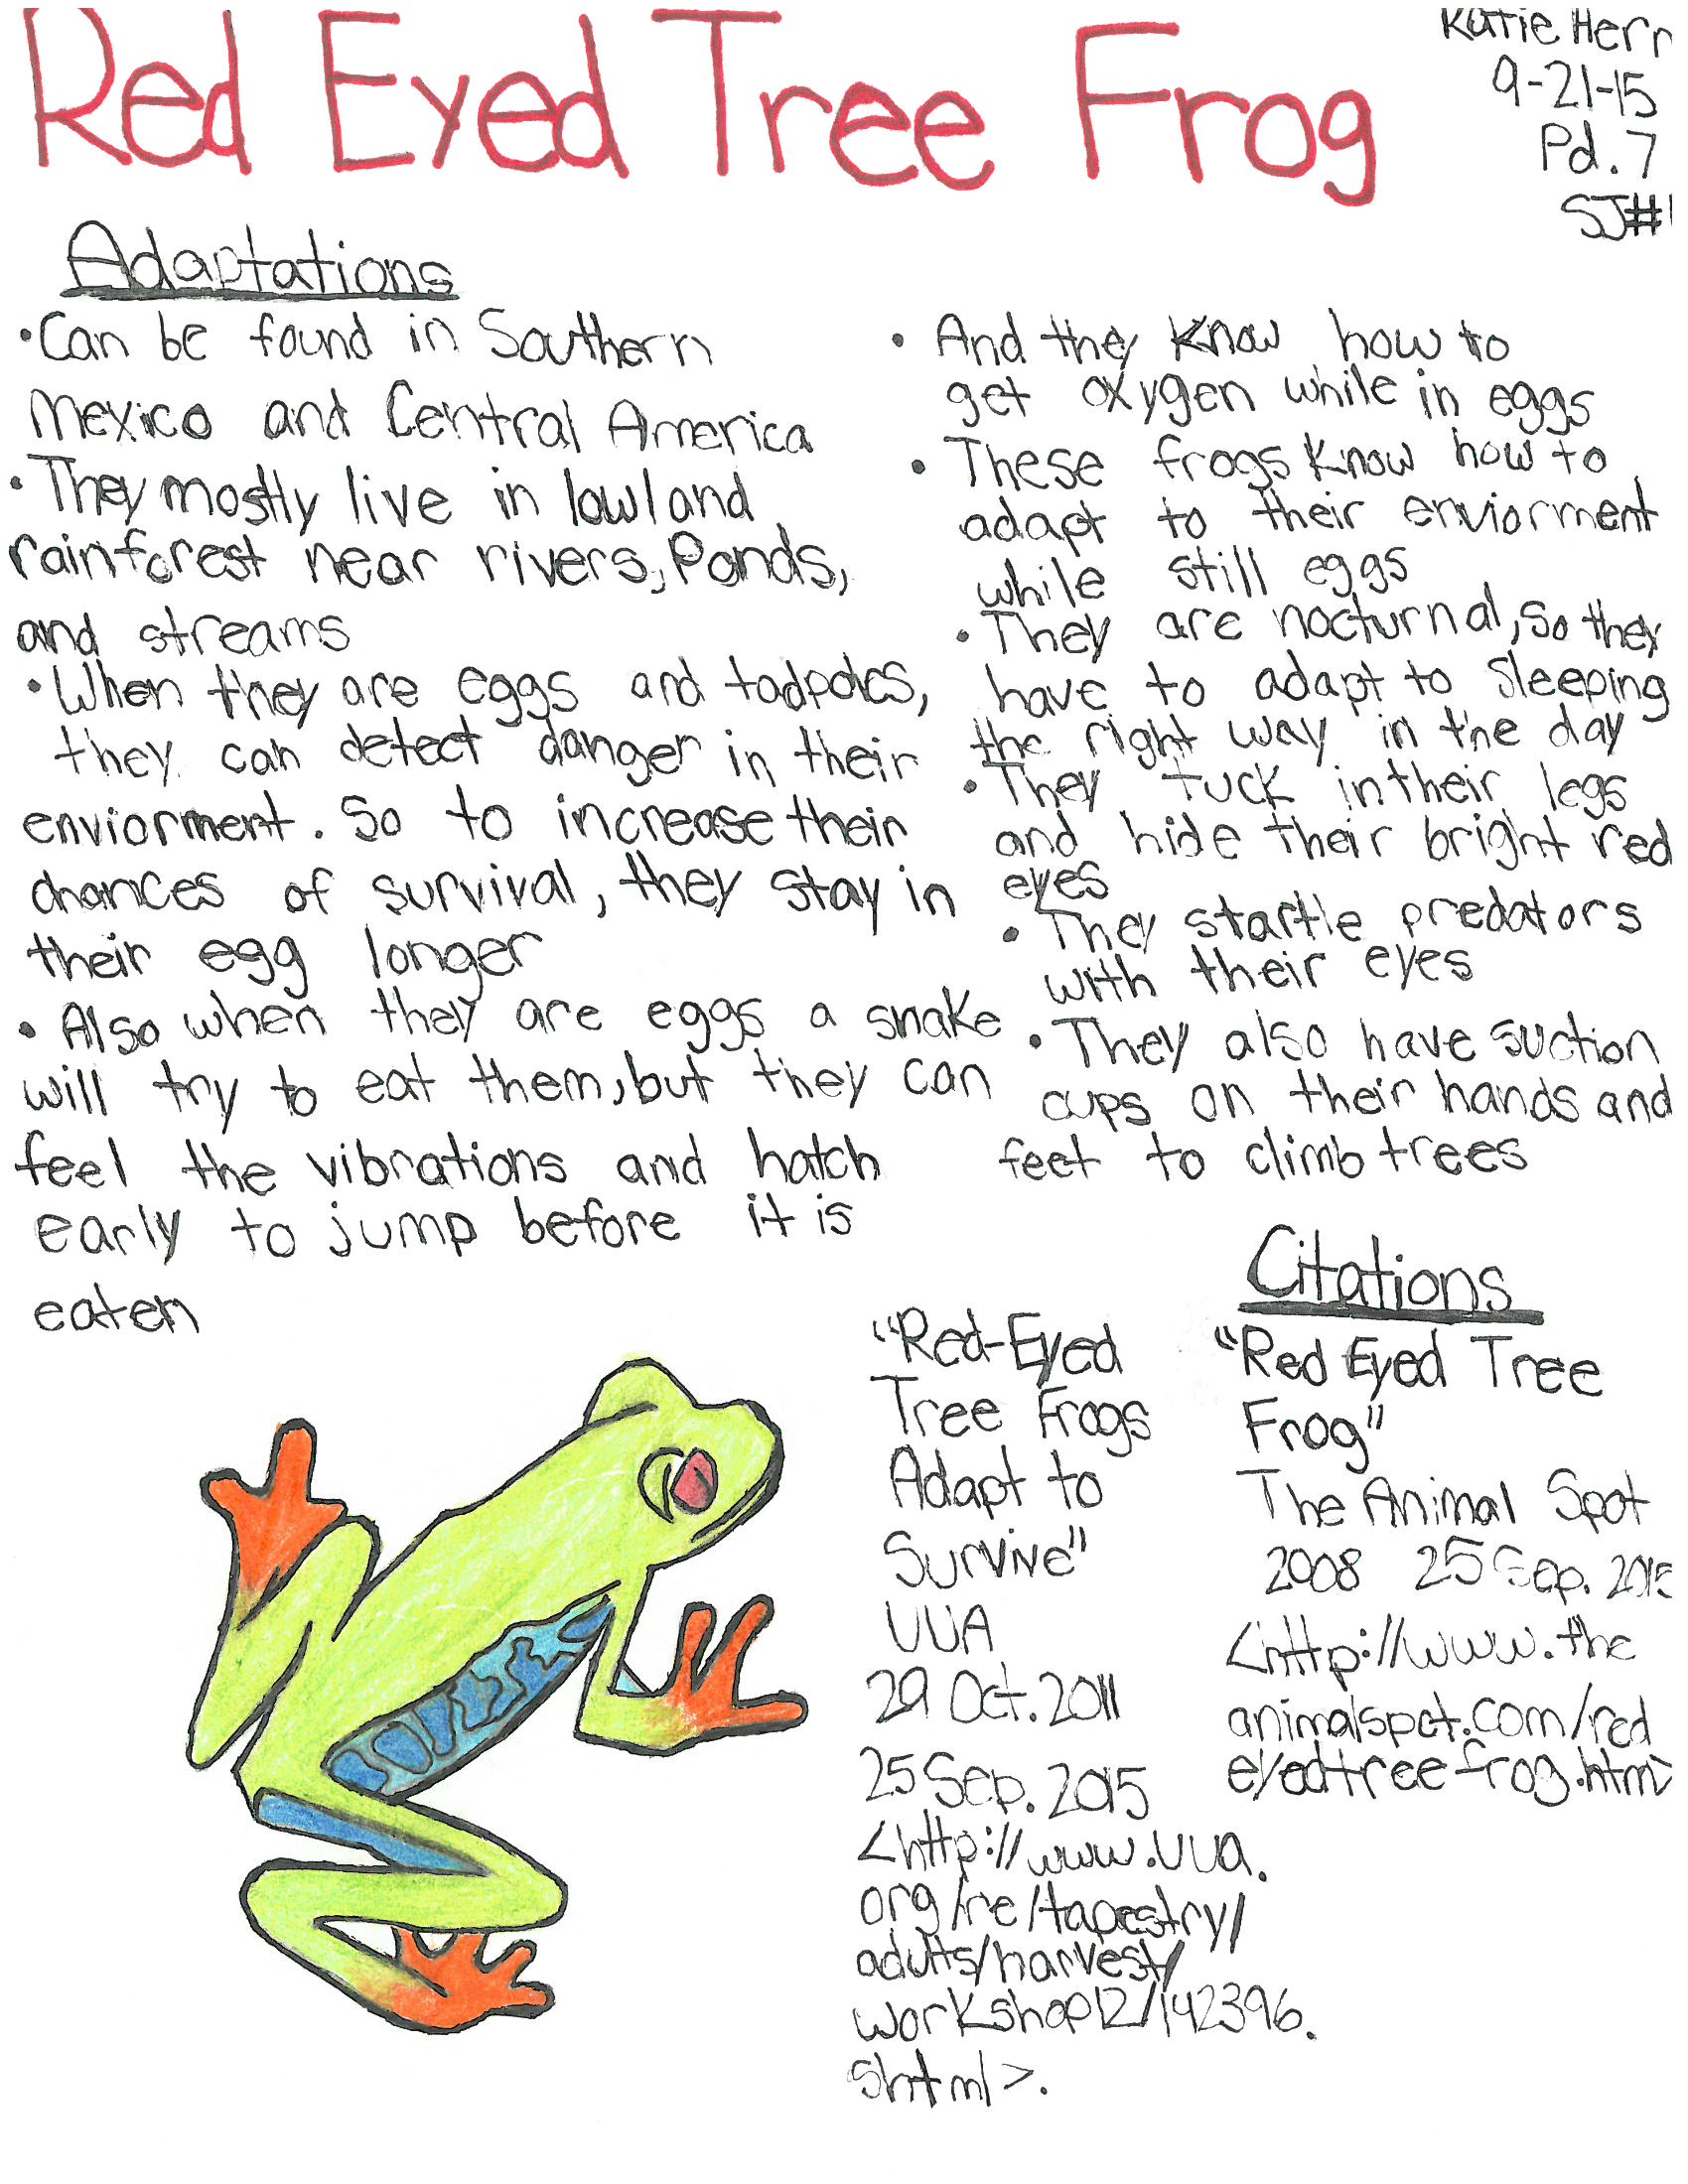 Red Eyed Tree Frog
Katie Herr
9-21-15
Pd. 7
SJ#1
Adaptations
•Can be found in Southern
Mexico and Central America
•They mostly live in lowland
rainforest near rivers, Ponds,
and streams
•When they are eggs and tadpoles,
they can detect danger in their
enviorment. So to increase their
chances of survival, they stay in
their egg longer
•Also when they are eggs a snake
will try to eat them, but they can
feel the vibrations and hatch
early to jump before it is
eaten
• And they know how to
get oxygen while in eggs
• These frogs know how to
adapt to their enviorment
while still eggs
• They are nocturnal, so they
have to adapt to sleeping
the right way in the day
• They tuck in their legs
and hide their bright red
eyes
• They startle predators
with their eyes
• They also have suction
cups on their hands and
feet to climb trees
Citations
"Red-Eyed
Tree Frogs
Adapt to
Survive"
UUA
29 Oct. 2011
25 Sep. 2015
<http://www.uua.
org/re/tapestry/
adults/harvest/
workshop12/142396.
shtml>.
"Red Eyed Tree
Frog"
The Animal Spot
2008 25 Sep. 2015
<http://www.the
animalspot.com/red
eyedtreefrog.htm>